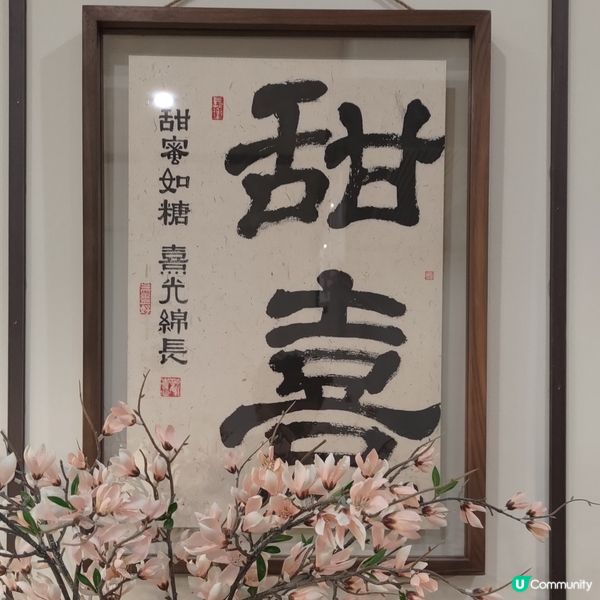 甜熹
甜蜜如糖 熹光綿長
U Community